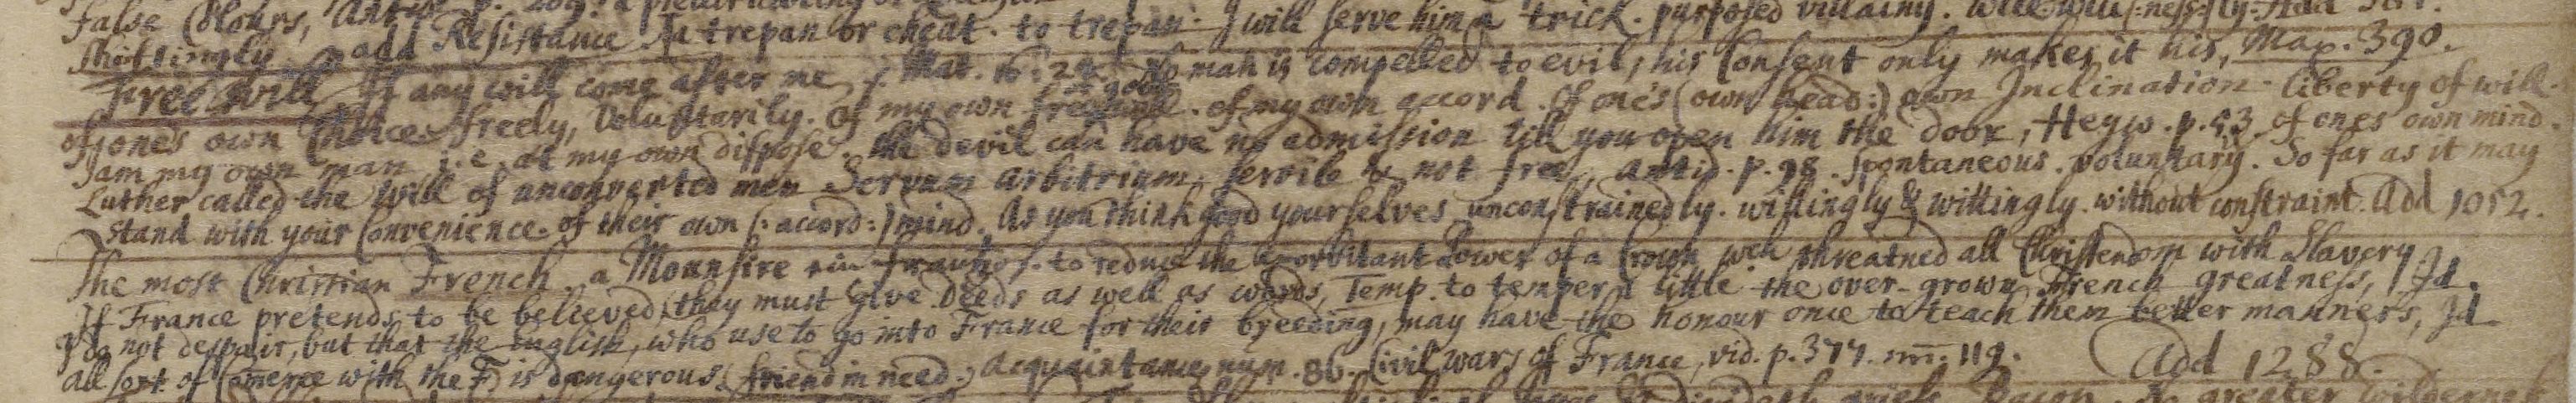 false Colours, Antid. p. 209. a
shiftingly. add Resistance. to trepan or cheat. to trepan. I will serve him a trick. purposed villainy. Add
Free will If any will come after me, Mat. 16: 24. No man is compelled to evil; his Consent only makes it his, Max. 390.
of one's own Choice. freely, Voluntarily. Of my own free will. of my own accord. Of one's (own head:) own Inclination. liberty of will.
I am my own man i.e. at my own dispose. the devil can have no admission till you open him the door, Heyw. p. 43. of ones own mind.
Luther called the Will of unconverted men Servum arbitrium, servile & not free, Antid. p. 98. Spontaneous. voluntary. So far as it may
stand with your Convenience. of their own (: accord:) mind. As you think good yourselves. unconstrainedly. willingly & wittingly. without constraint. Add 1052.
The most Christian French. a Mounsire to reduce the exorbitant Power of a Crown wch threatned all Christendom with Slavery
If France pretends to be believed, they must give Deeds as well as words, Temp. to temper a little the over-grown French greatness, Id.
I do not despair, but that the English, who use to go into France for their breeding, may have the honour once to teach them better manners, Id.
All sort of Comerce with the F. is dangerous. (friend in need.) Acquaintance num. 86. Civil wars of France, vid. p. 377. nu. 119. Add 1288.
greater wilderness